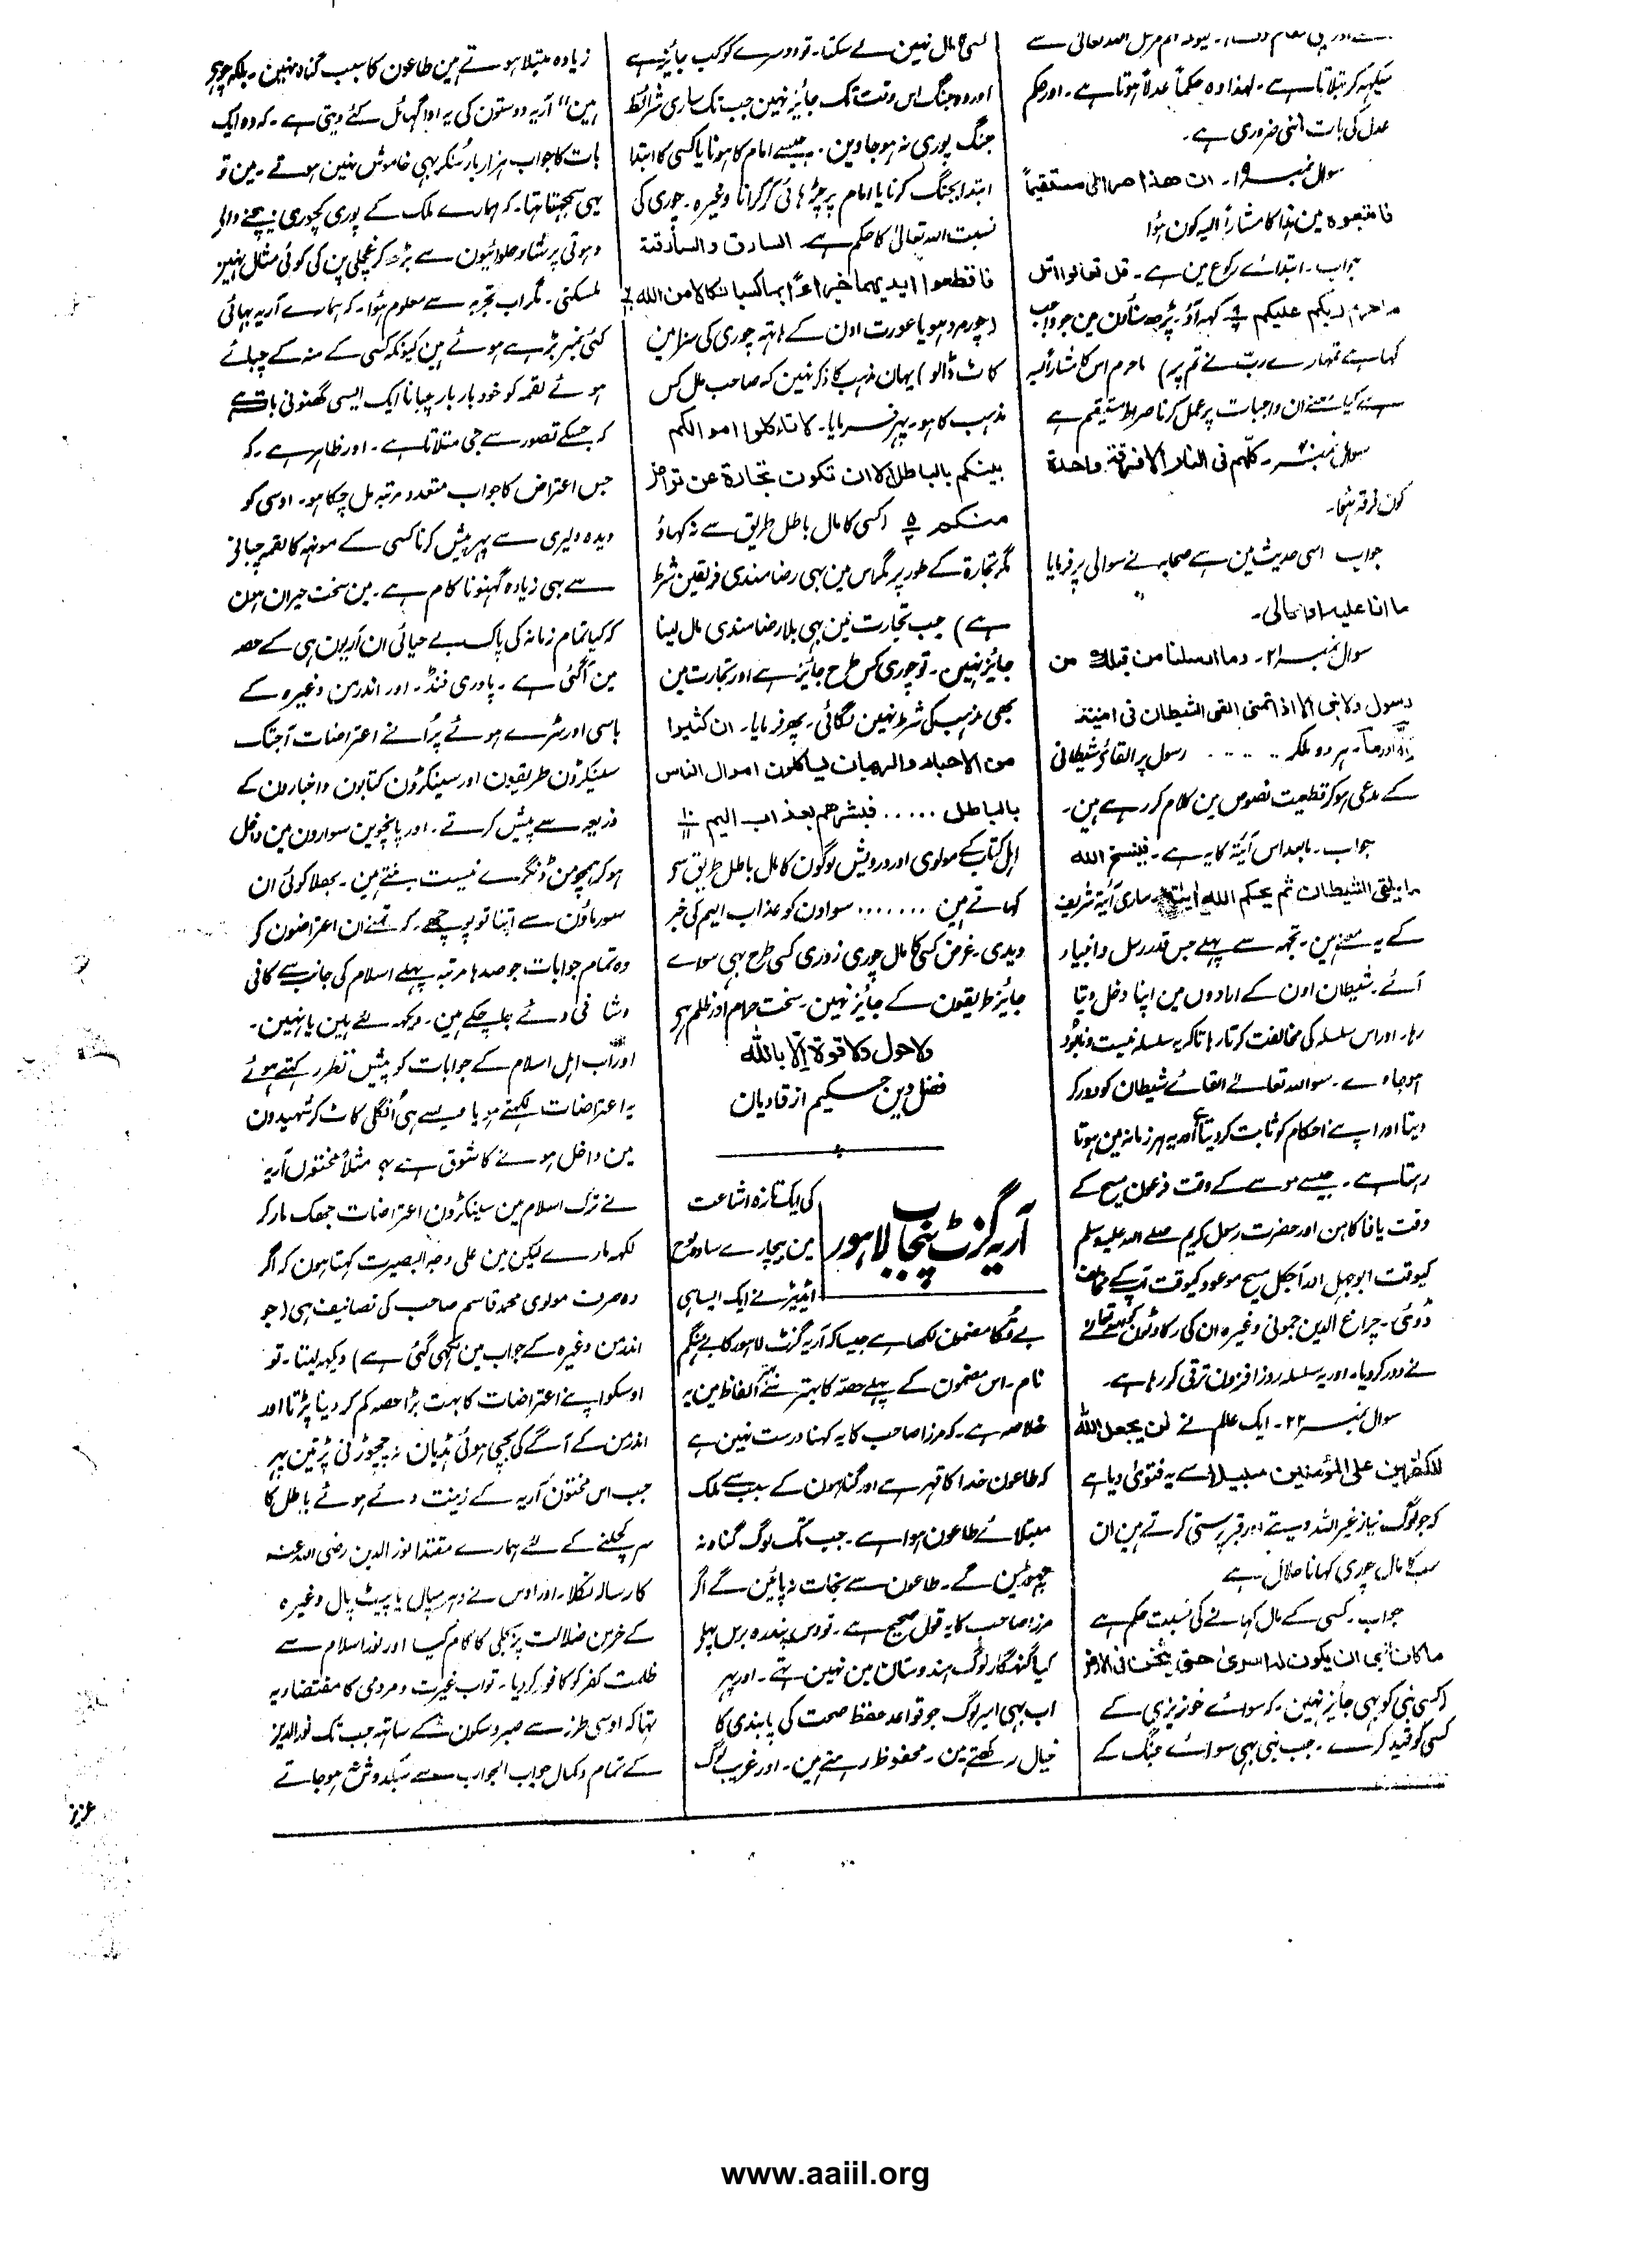 سیکھہ کر بتلاتا ہے۔ لہذا وہ حکماً عدلاً ہوتا ہے۔ اور حکم
عدل کی بات ماننی ضروری ہے۔
سوال نمبر ۱۹۔ ان ھذا صراطی مستقیماً
فاتبعوہ مین ہذا کا مشارٌ الیہ کون ہؤا
جواب۔ ابتدائے رکوع مین ہے۔ قل تعالوا اتل
ما حرم ربکم علیکم کہہ آؤ۔ پڑھ سناؤن مین جو واجب
کہا ہے تمہارے ربّ نے تم پر) ماحرم اس کا مشارٌ الیہ
ہے کیا معنے ان واجبات پر عمل کرنا صراط مستقیم ہے
سوال نمبر ۲۰۔ کلّہم فی النار الا فرقۃ واحدۃ
کون فرقہ ہؤا۔
جواب اسی حدیث مین ہے صحابہ نے سوال پر فرمایا
ما انا علیہ واصحابی۔
سوال نمبر ۲۱۔ وما ارسلنا من قبلک من
رسول ولا نبی الا اذا تمنی القی الشیطان فی امنیتہ
اور ما۔ ہر دو ملکر ..... رسول پر القائے شیطانی
کے مدعی ہو کر قطعیت نصوص مین کلام کر رہے ہین۔
جواب۔ مابعد اس آیۃ کا یہ ہے۔ فینسخ اللہ
ما یلقی الشیطان ثم یحکم اللہ اٰیٰتہ۔ ساری آیۃ شریف
کے یہ معنے ہین۔ تجھہ سے پہلے جس قدر رسل و انبیاء
آئے۔ شیطان اون کے ارادوں مین اپنا دخل دیتا
رہا۔ اور اس سلسلہ کی مخالفت کرتا رہا تاکہ یہ سلسلہ نیست و نابود
ہو جاوے۔ سو اللہ تعالےٰ القائے شیطان کو دور کر
دیتا اور اپنے احکام کو ثابت کر دیتا ہے اور یہ ہر زمانہ مین ہوتا
رہتا ہے۔ جیسے موسے کے وقت فرعون مسیح کے
وقت یافا کاہن اور حضرت رسول کریم صلے اللہ علیہ وسلم
کیوقت ابوجہل اور آجکل مسیح موعود کیوقت آپ کے مخالف
ڈوئی۔ چراغ الدین جمونی وغیرہ ان کی رکاوٹون کو اللہ تعالےٰ
نے دور کر دیا۔ اور یہ سلسلہ روز افزون ترقی کر رہا ہے۔
سوال نمبر ۲۲۔ ایک عالم نے لن یجعل اللہ
للکافرین علی المؤمنین سبیلا سے یہ فتویٰ دیا ہے
کہ جو لوگ نیاز غیر اللہ دیتے اور قبر پرستی کرتے ہین ان
سب کا مال چوری کہانا حلال ہے
جواب۔ کسی کے مال کہانے کی نسبت حکم ہے
ما کان لنبی ان یکون لہ اسریٰ حتی یثخن فی الارض
(کسی نبی کو بہی جائیز نہین۔ کہ سوائے خونریزی کے
کسی کو قید کرے۔ جب نبی بہی سوائے جنگ کے
کسی کا مال نہین لے سکتا۔ تو دوسرے کو کب جائیز ہے
اور وہ جنگ اس وقت تک جائیز نہین جب تک ساری شرائط
جنگ پوری نہ ہو جاوین۔ جیسے امام کا ہونا یا کسی کا ابتدا
ابتدا بجنگ کرنا یا امام پر چڑہائی کر کرانا وغیرہ۔ چوری کی
نسبت اللہ تعالیٰ کا حکم ہے السارق والسارقۃ
فاقطعوا ایدیہما جزاءً بما کسبا نکالا من اللہ
(چور مرد ہو یا عورت اون کے ہاتہہ چوری کی سزا مین
کاٹ ڈالو) یہان مذہب کا ذکر نہین کہ صاحب مال کس
مذہب کا ہو۔ پہر فرمایا۔ لا تاکلوا اموالکم
بینکم بالباطل الا ان تکون تجارۃ عن تراض
منکم (کسی کا مال باطل طریق سے نہ کہاؤ
مگر تجارۃ کے طور پر مگر اس مین بہی رضامندی فریقین شرط
ہے) جب تجارت مین بہی بلا رضامندی مال لینا
جائیز نہین۔ تو چوری کس طرح جائیز ہے اور تجارت مین
بھی مذہب کی شرط نہین لگائی۔ پھر فرمایا۔ ان کثیرا
من الاحبار والرہبان لیاکلون اموال الناس
بالباطل ..... فبشرھم بعذاب الیم
اہل کتاب کے مولوی اور درویش لوگون کا مال باطل طریق سے
کہاتے ہین ....... سو اون کو عذاب الیم کی خبر
دیدی۔ غرض کسی کا مال چوری زوری کسی طرح بہی سوائے
جائیز طریقون کے جائیز نہین۔ سخت حرام اور ظلم ہے
ولا حول ولا قوۃ الا باللہ
فضل دین حکیم از قادیان
آریہ گزٹ پنجاب لاہور
کی ایک تازہ اشاعت
مین بیچارے سادہ لوح
ایڈیٹر نے ایک ایسا ہی
بے تُکا مضمون لکھا ہے جیسا کہ آریہ گزٹ لاہور کا بے ہنگم
نام۔ اس مضمون کے پہلے حصہ کا بہتر سے بہتر الفاظ مین یہ
خلاصہ ہے۔ کہ مرزا صاحب کا یہ کہنا درست نہین ہے
کہ طاعون خدا کا قہر ہے اور گناہون کے سبب سے ملک
مبتلائے طاعون ہوا ہے۔ جب تک لوگ گناہ نہ
چہوڑین گے۔ طاعون سے نجات نہ پائین گے اگر
مرزا صاحب کا یہ قول صحیح ہے۔ تو دس پندرہ برس پہلے
کیا گنہگار لوگ ہندوستان مین نہین تہے۔ اور پہر
اب بہی امیر لوگ جو قواعد حفظ صحت کی پابندی کا
خیال رکھتے ہین۔ محفوظ رہتے ہین۔ اور غریب لوگ
زیادہ مبتلا ہوتے ہین طاعون کا سبب گناہ نہین۔ بلکہ چوہے
ہین" آریہ دوستون کی یہ ادا گہائل کئے دیتی ہے۔ کہ وہ ایک
بات کا جواب ہزار بار سُنکر بہی خاموش نہین ہوتے۔ مین تو
یہی سمجہتا تہا۔ کہ ہمارے ملک کے پوری کچوری بیچنے والے
دہوتی پرشاد حلوائیون سے بڑھ کر غچلی پن کی کوئی مثال نہین
ملسکتی۔ مگر اب تجربہ سے معلوم ہؤا۔ کہ ہمارے آریہ بہائی
کئی نمبر بڑہے ہوئے ہین کیونکہ کسی کے منہ کے چبائے
ہوئے لقمہ کو خود بار بار چبانا ایک ایسی گھنونی بات ہے
کہ جسکے تصور سے جی متلاتا ہے۔ اور ظاہر ہے۔ کہ
جس اعتراض کا جواب متعدد مرتبہ مل چکا ہو۔ اوسی کو
دیدہ دلیری سے پہر پیش کرنا کسی کے مونہہ کا لقمہ چبانے
سے بہی زیادہ گہنونا کام ہے۔ مین سخت حیران ہون
کہ کیا تمام زمانہ کی پاک بے حیائی ان آریون ہی کے حصہ
مین آگئی ہے۔ پادری فنڈر۔ اور اندرمن وغیرہ کے
باسی اور سڑے ہوئے پُرانے اعتراضات آجتک
سینکڑون طریقون اور سینکڑون کتابون و اخبارون کے
ذریعہ سے پیش کرتے۔ اور پانچوین سوارون مین داخل
ہو کر ہمچومن ڈنگرے نیست بنتے ہین۔ بھلا کوئی ان
سورماؤن سے اتنا تو پوچھے۔ کہ تمنے ان اعتراضون کر
وہ تمام جوابات جو صدہا مرتبہ پہلے اسلام کی جانب سے کافی
و شافی دئے جا چکے ہین۔ دیکہہ لئے ہین یا نہین۔
اور اب اہل اسلام کے جوابات کو پیش نظر رکہتے ہوئے
یہ اعتراضات لکہتے ہو یا ویسے ہی اُنگلی کاٹ کر شہیدون
مین داخل ہونے کا شوق ہے؟ مثلاً مختون آریہ
نے ترک اسلام مین سینکڑون اعتراضات جھک مار کر
لکہہ مارے لیکن مین علی وجہ البصیرت کہتا ہون کہ اگر
وہ صرف مولوی محمد قاسم صاحب کی تصانیف ہی (جو
اندرمن وغیرہ کے جواب مین لکھی گئی ہے) دیکہہ لیتا۔ تو
اوسکو اپنے اعتراضات کا بہت بڑا حصہ کم کر دینا پڑتا اور
اندرمن کے آگے کی بچی ہوئی ہڈیان نہ چچوڑنی پڑتین پہر
جب اس مختون آریہ کے زینت دئے ہوئے باطل کا
سر کچلنے کے لئے ہمارے مقتدا نور الدین رضی اللہ عنہ
کا رسالہ نکلا۔ اور اوس نے دہرمپال یا پیٹ پال وغیرہ
کے خرمن ضلالت پر بجلی کا کام کیا اور نور اسلام سے
ظلمت کفر کو کافور کر دیا۔ تو اب غیرت و مردمی کا مقتضا یہ
تہا کہ اوسی طرز سے صبر و سکون کے ساتہہ جب تک نور الدین
کے تمام و کمال جواب الجواب سے سبکدوش ہو جاتے
عزیز
www.aaiil.org